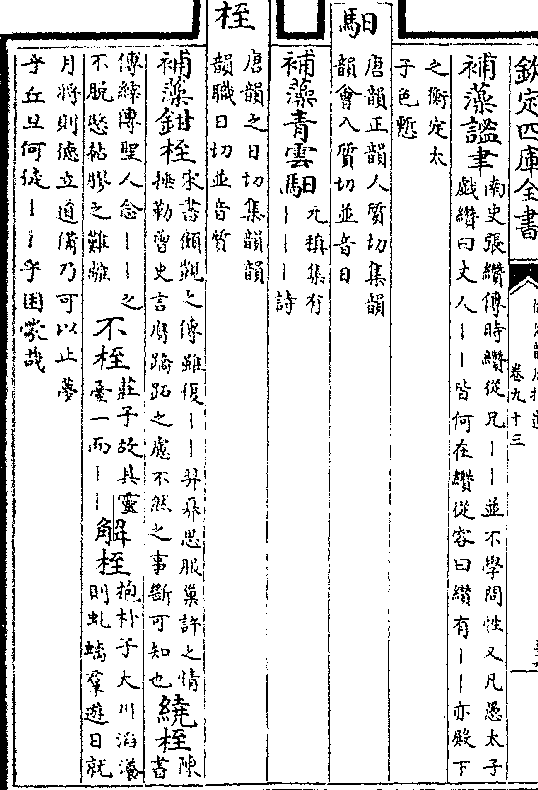 欽定四庫全書
卷九十三
補藻謐聿南史張纘傳時纘從兄丨丨並不學問性又凡愚太子
戲纘曰丈人丨丨皆何在纘從容曰纘有丨丨亦殿下
之衡定太
子色慙
馹
唐韻正韻人質切集韻
韻會入質切並音日
補藻青雲馹元稹集有
丨丨丨詩
桎
唐韻之日切集韻韻
韻職日切並音質
補藻鉗桎宋書顧覬之傳雖復丨丨羿奡思服巢許之情
捶勒曾史言膺蹻跖之慮不然之事斷可知也繞桎陳書
傳縡傳聖人念丨丨之
不脫愍黏膠之難離不桎莊子故其靈
臺一而丨丨解桎抱朴子大川滔瀁
則虬螭羣遊日就
月將則德立道備乃可以止夢
乎丘旦何徒丨丨乎困蒙哉